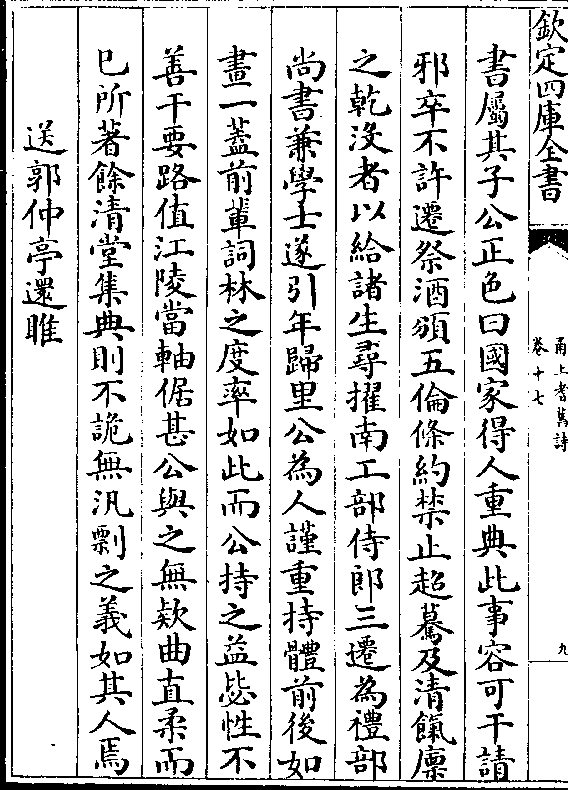 欽定四庫全書
甬上耆舊詩
卷十七
九
書屬其子公正色曰國家得人重典此事容可干請
邪卒不許遷祭酒頒五倫條約禁止超驀及清餼廩
之乾沒者以給諸生尋擢南工部侍郎三遷為禮部
尚書兼學士遂引年歸里公為人謹重持體前後如
畫一蓋前軰詞林之度率如此而公持之益毖性不
善干要路值江陵當軸倨甚公與之無欵曲直柔而
已所著餘清堂集典則不詭無汎剽之義如其人焉
送郭仲亭還睢